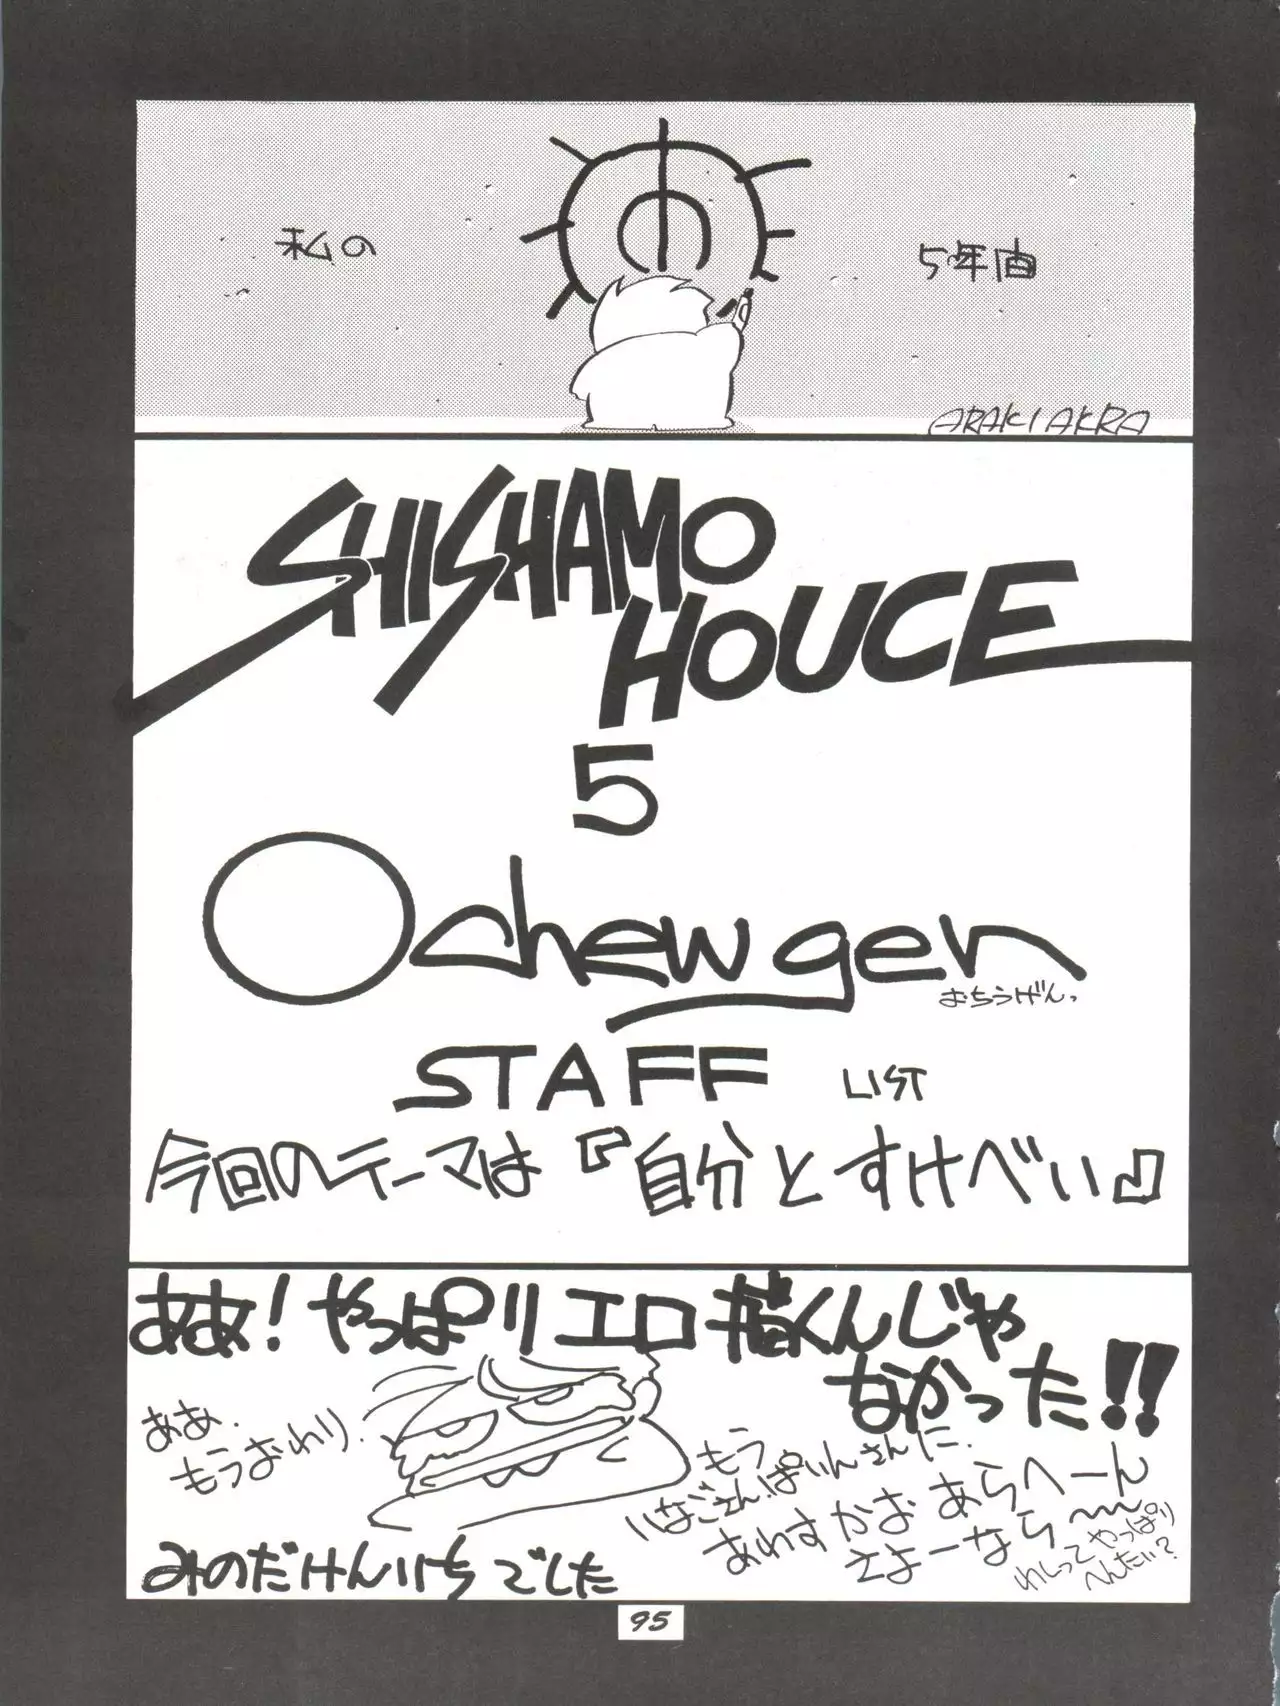 私の
5年間
ARAKI AKIRA
SHISHAMO
HOUCE
5
Ochewgen
おちうげんっ
STAFF LIST
今回のテーマは『自分とすけべい』
ああ!やっぱりエロ描くんじゃ
なかった!!
ああ.
もうおわり.
もう
いなごさん.ぱいんさんに.
あわすかお あらへーん
さよーなら〜
わしってやっぱり
へんたい?
みのだけんいちでした
95